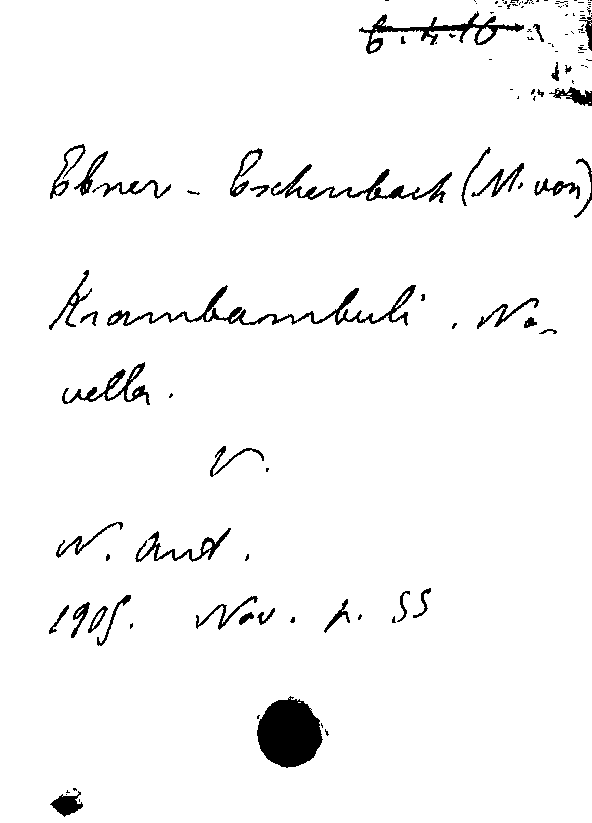 6.4.16
Ebner - Eschenbach (M. von)
Krambambuli. No-
vella.
V.
N. Ant.
1905. Nov. p. 55